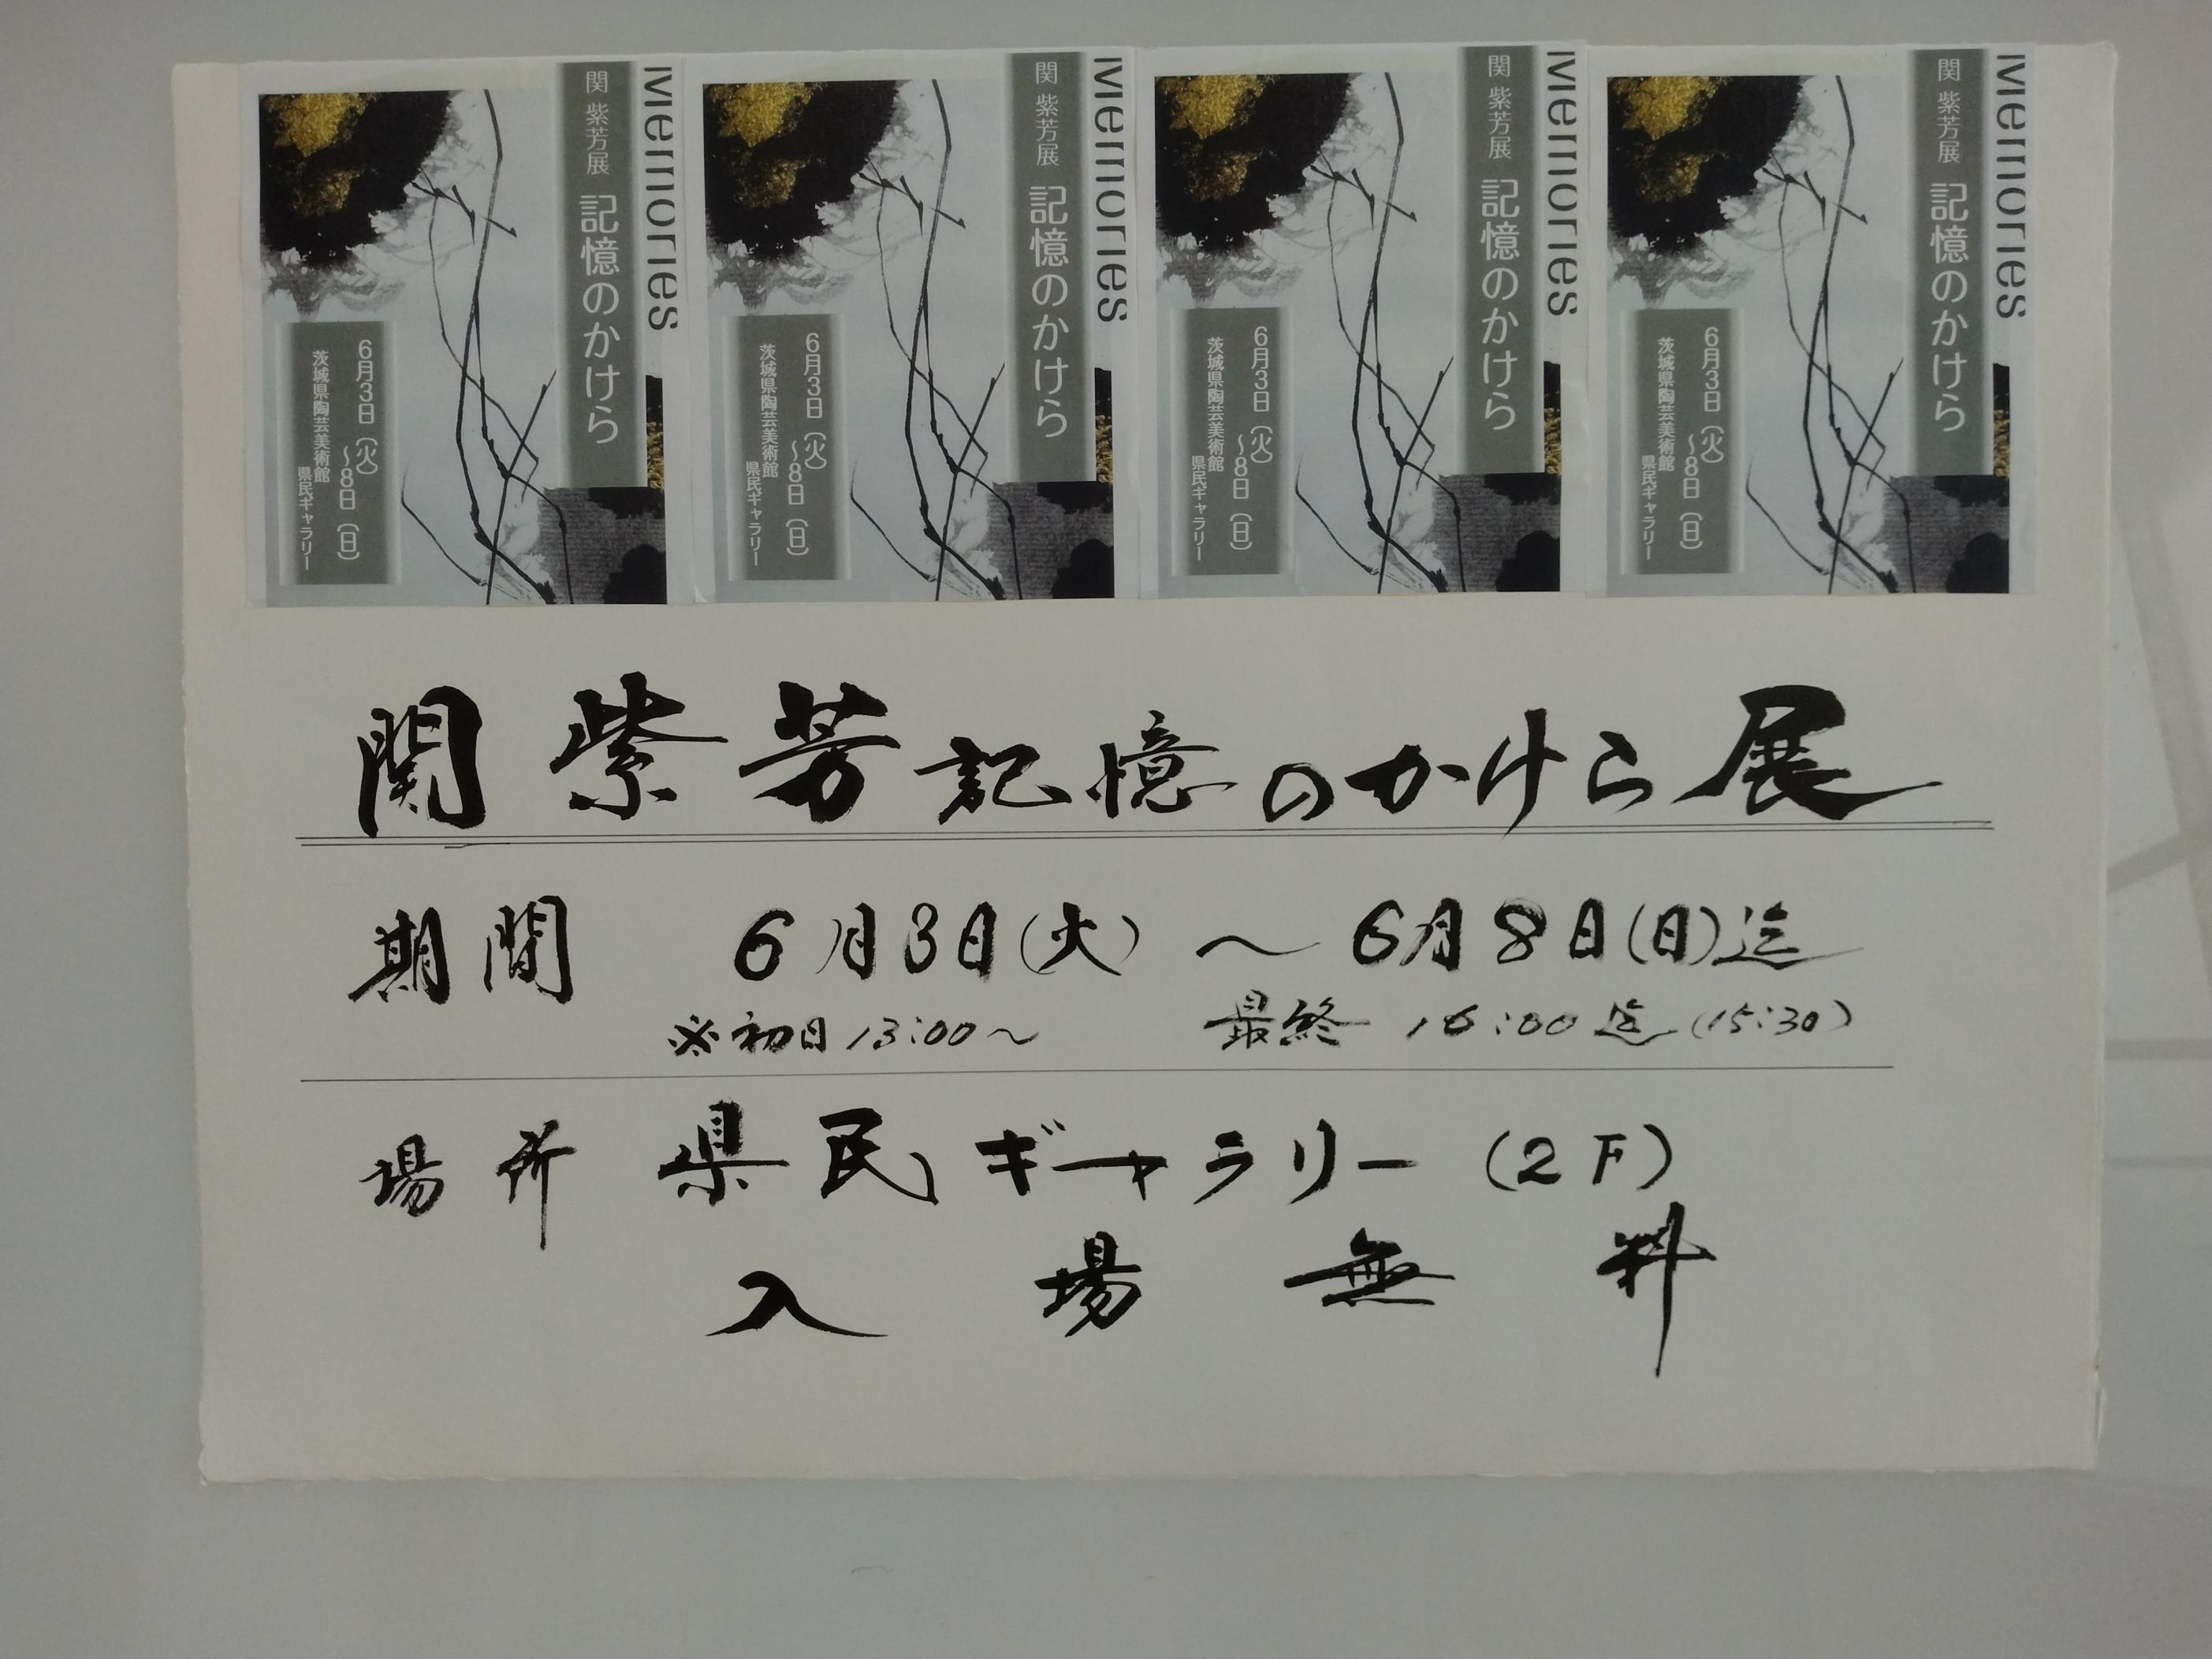 Memories
関 紫芳展 記憶のかけら
6月3日(火)
~8日(日)
茨城県陶芸美術館
県民ギャラリー
Memories
関 紫芳展 記憶のかけら
6月3日(火)
~8日(日)
茨城県陶芸美術館
県民ギャラリー
Memories
関 紫芳展 記憶のかけら
6月3日(火)
~8日(日)
茨城県陶芸美術館
県民ギャラリー
Memories
関 紫芳展 記憶のかけら
6月3日(火)
~8日(日)
茨城県陶芸美術館
県民ギャラリー
関 紫芳 記憶のかけら展
期間 6月3日(火) ~ 6月8日(日)迄
※初日13:00~ 最終 16:00迄(15:30)
場所 県民ギャラリー (2F)
入場無料